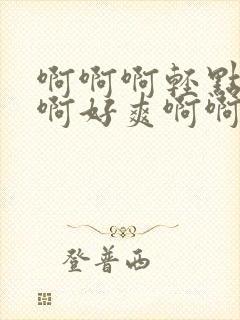 啊啊啊轻點
啊好爽啊啊
登普西